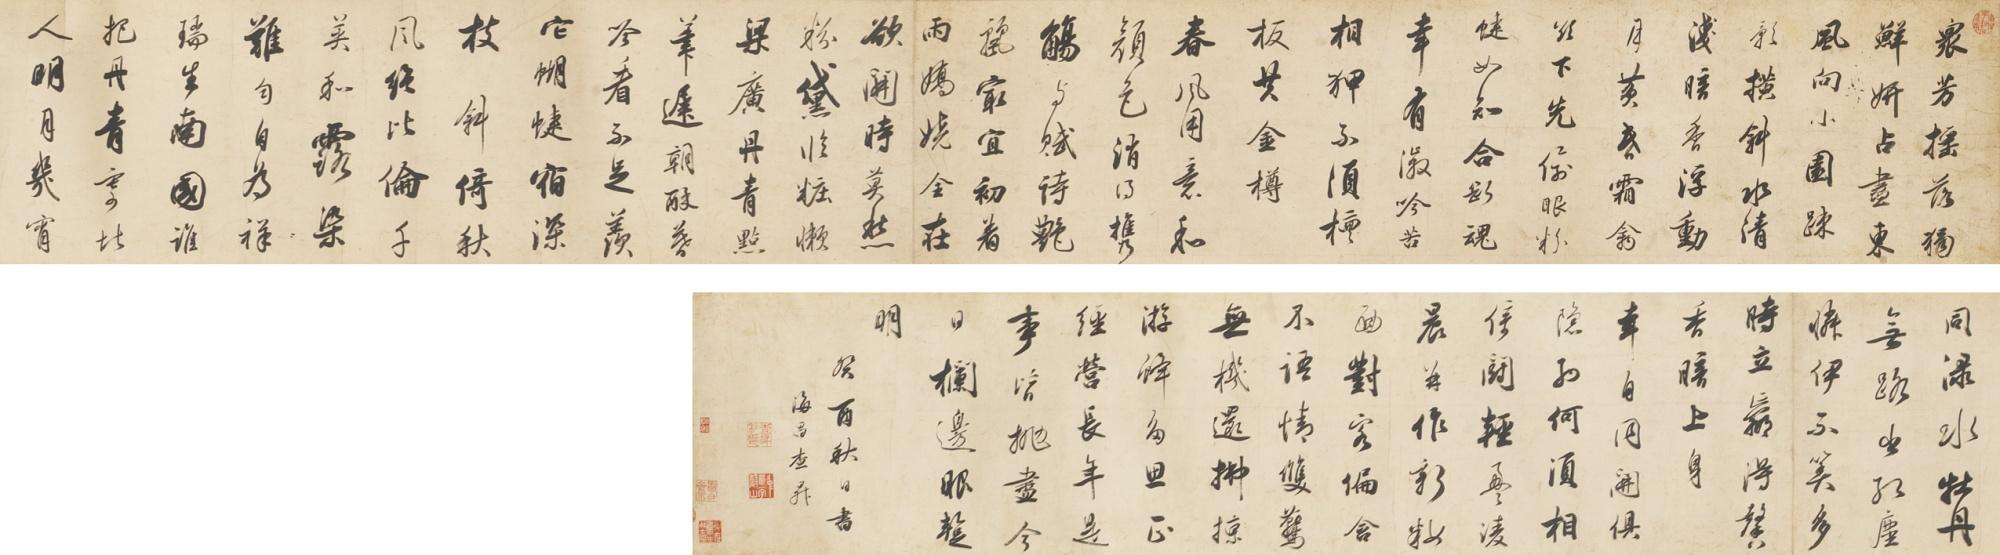 衆芳搖落獨
鮮妍占盡東
風向小園疎
影橫斜水清
淺暗香浮動
月黃昏霜禽
欲下先偷眼粉
蜨如知合斷魂
幸有微吟苦
相狎不須檀
板共金樽
春風用意和
顏色消得攜
觴与賦詩艷
麗最宜初着
雨嬌嬈全在
欲開時莫愁
粉黛臨粧懶
梁廣丹青點
筆遲朝酔暮
吟看不足羨
它蝴蜨宿深
枝斜倚秋
風絕比倫千
英和露染
難勻自為祥
瑞生南國誰
把丹青寄北
人明月幾宵
同淥水牡丹
無路出紅塵
憐伊不算多
時立贏得馨
香暗上身
幸自同開俱
隱約何須相
倚鬬輕盈凌
晨並作新妝
面對客偏含
不語情雙鷰
無機還拂掠
游蜂多思正
經營長年是
事皆拋盡今
日欄邊眼蹔
明
癸酉秋日書
海昌查昇